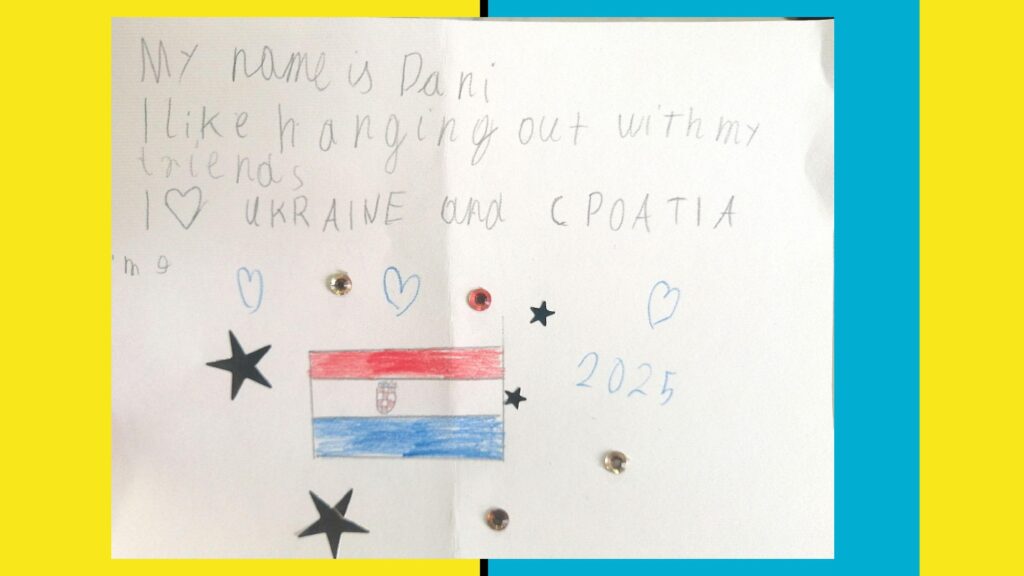 My name is Dani
I like hanging out with my
friends
I ♡ UKRAINE and CPOATIA
'm 9
2025